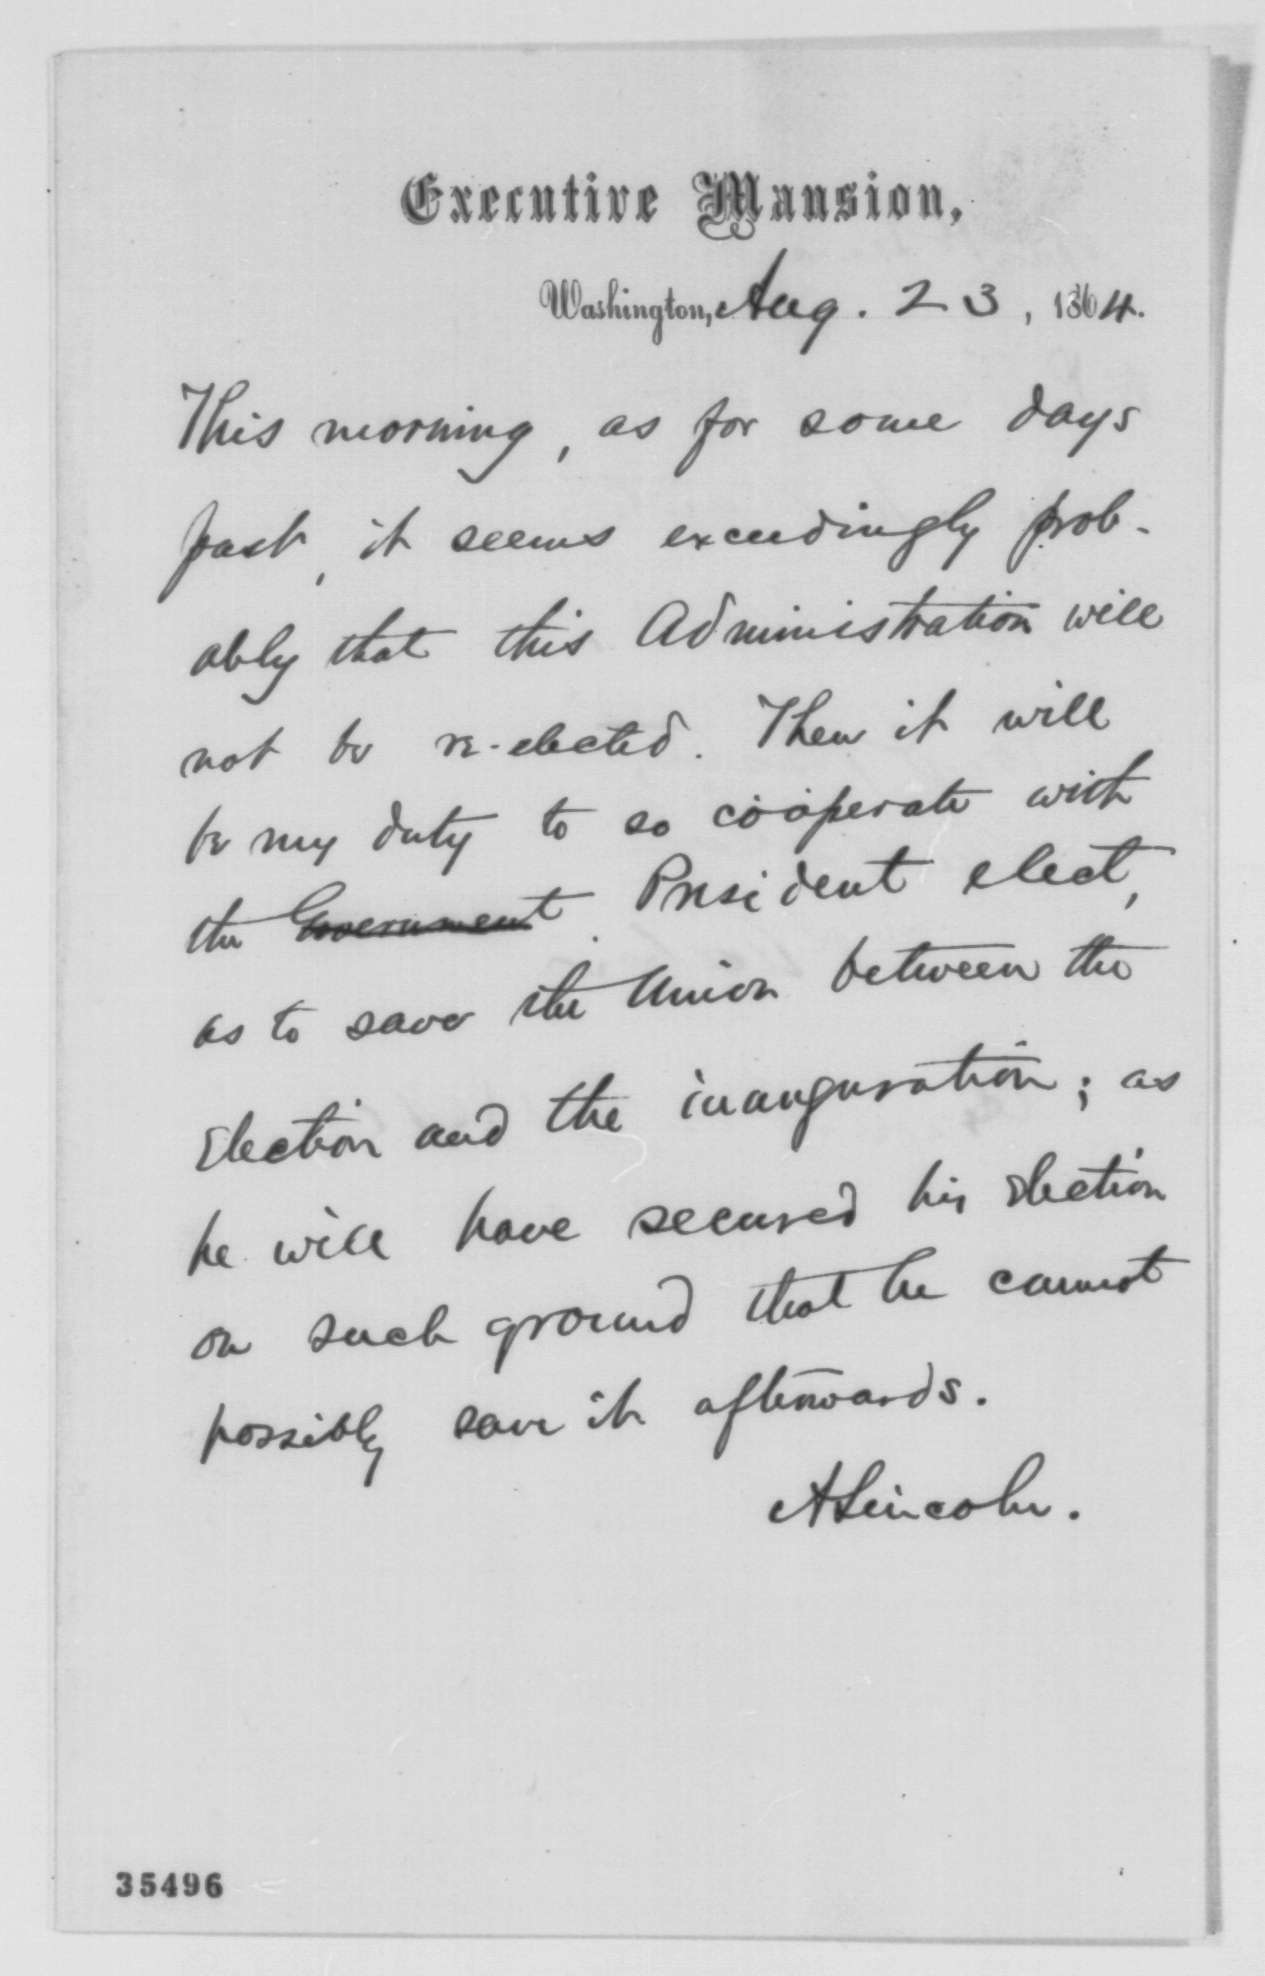 Executive Mansion,
Washington, Aug. 23, 1864.
This morning, as for some days
past, it seems exceedingly prob-
ably that this Administration will
not be re-elected. Then it will
be my duty to so cooperate with
the Government President elect,
as to save the Union between the
election and the inauguration; as
he will have secured his election
on such ground that he cannot
possibly save it afterwards.
A Lincoln.
35496